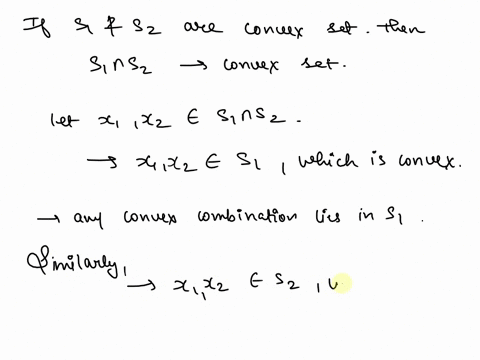 If S1 & S2 are convex set. then
S1∩S2 → convex set.
let x1, x2 ∈ S1∩S2.
→ x1, x2 ∈ S1, which is convex.
→ any convex combination lies in S1.
Similarly,
→ x1, x2 ∈ S2,